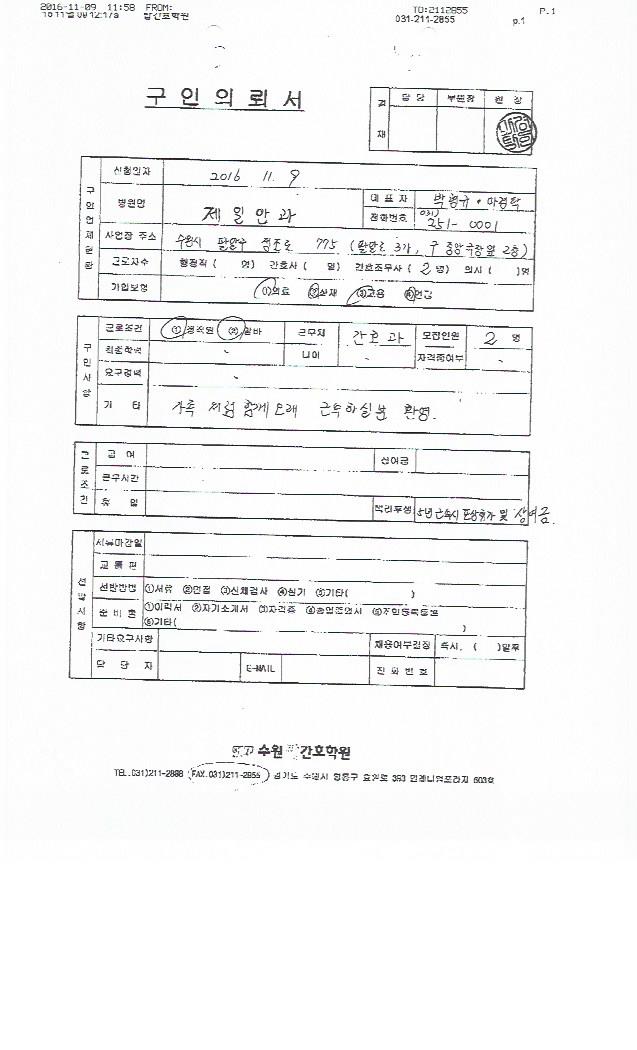 2016-11-09 11:58 FROM: TO:2112855 P.1
031-211-2855 p.1
구 인 의 뢰 서
결 재 담 당 부원장 원 장
구인업체현황
신청일자 2016 11. 9
병원명 제일안과 대 표 자 박형규·
전화번호 031) 251-0001
사업장 주소 수원시 팔달구 정조로 775 (팔달로 3가, 구 중앙극장옆 2층)
근로자수 행정직 ( 명) 간호사 ( 명) 간호조무사 ( 2 명) 의사 ( )명
가입보험 ①의료 ②산재 ③고용 ④연금
구인사항
근로조건 ①정직원 ②알바 근무처 간호과 모집인원 2 명
최종학력 - 나이 - 자격증여부 -
요구경력 -
기 타 가족처럼 함께 오래 근속하실분 환영.
근로조건
급 여 상여금
근무시간
휴 일 복리후생 5년 근속시 포상휴가 및 상여금.
선발사항
서류마감일
교 통 편
선발방법 ①서류 ②면접 ③신체검사 ④실기 ⑤기타( )
준 비 물 ①이력서 ②자기소개서 ③자격증 ④졸업증명서 ⑤주민등록등본
⑥기타( )
기타요구사항 채용여부결정 즉시, ( )일후
담 당 자 E-MAIL 전 화 번 호
수원 간호학원
TEL.031)211-2888 FAX.031)211-2855 경기도 수원시 영통구 효원로 363 603호